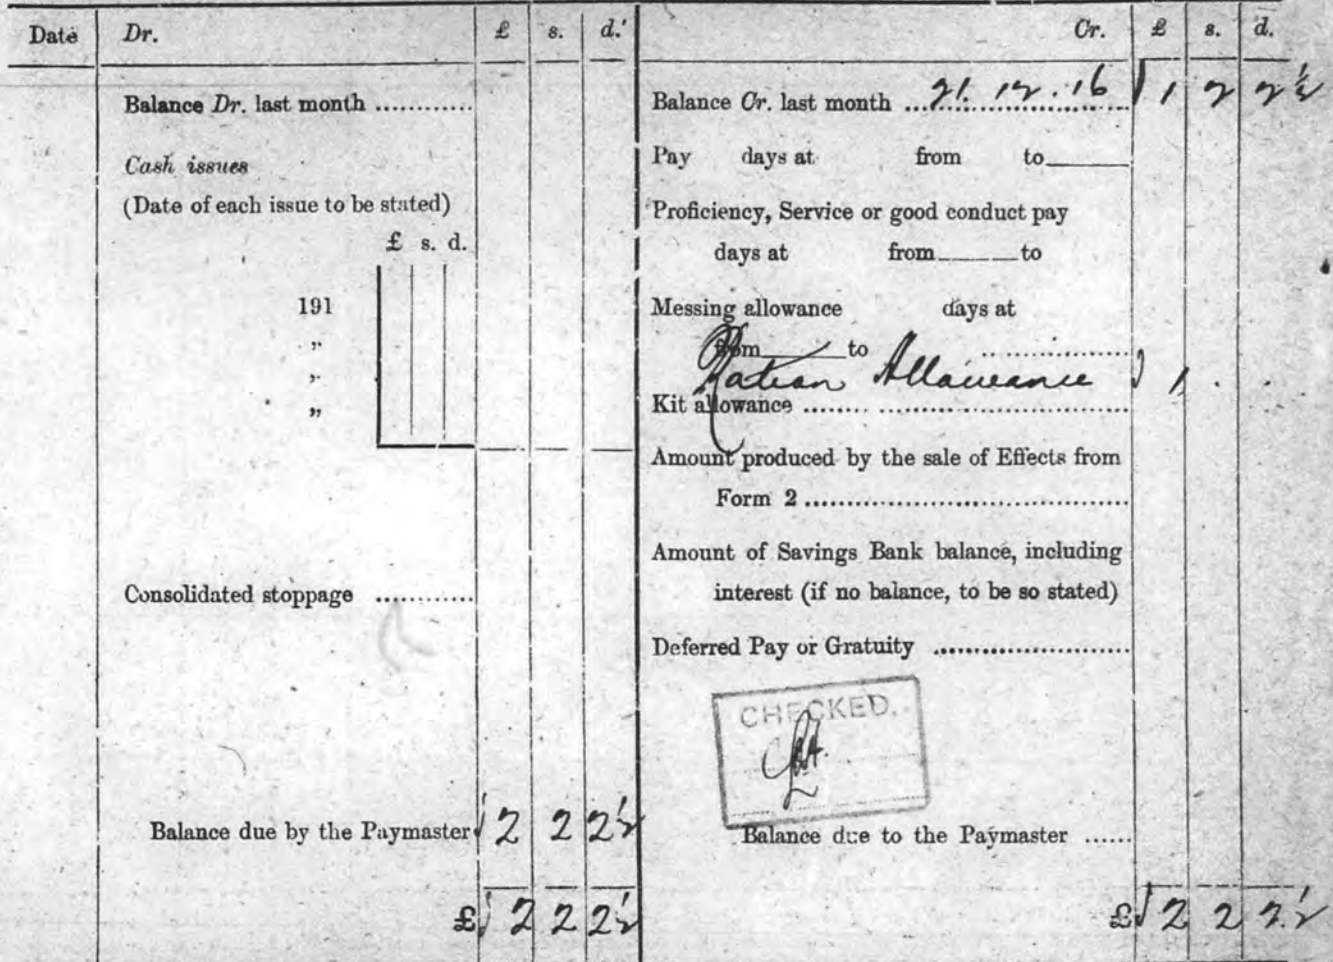 Date Dr. £ s. d. Cr. £ s. d.
Balance Dr. last month ............
Cash issues
(Date of each issue to be stated)
£ s. d.
191
„
„
„
Consolidated stoppage ............
Balance due by the Paymaster 2 2 2½
£ 2 2 2½
Balance Cr. last month ...21.12.16 1 2 2½
Pay days at from to
Proficiency, Service or good conduct pay
days at from to
Messing allowance days at
from to
Ration Allowance 1 . .
Kit allowance ........ ............................
Amount produced by the sale of Effects from
Form 2 .....................................
Amount of Savings Bank balance, including
interest (if no balance, to be so stated)
Deferred Pay or Gratuity ......................
CHECKED.
Balance due to the Paymaster ......
£ 2 2 2½